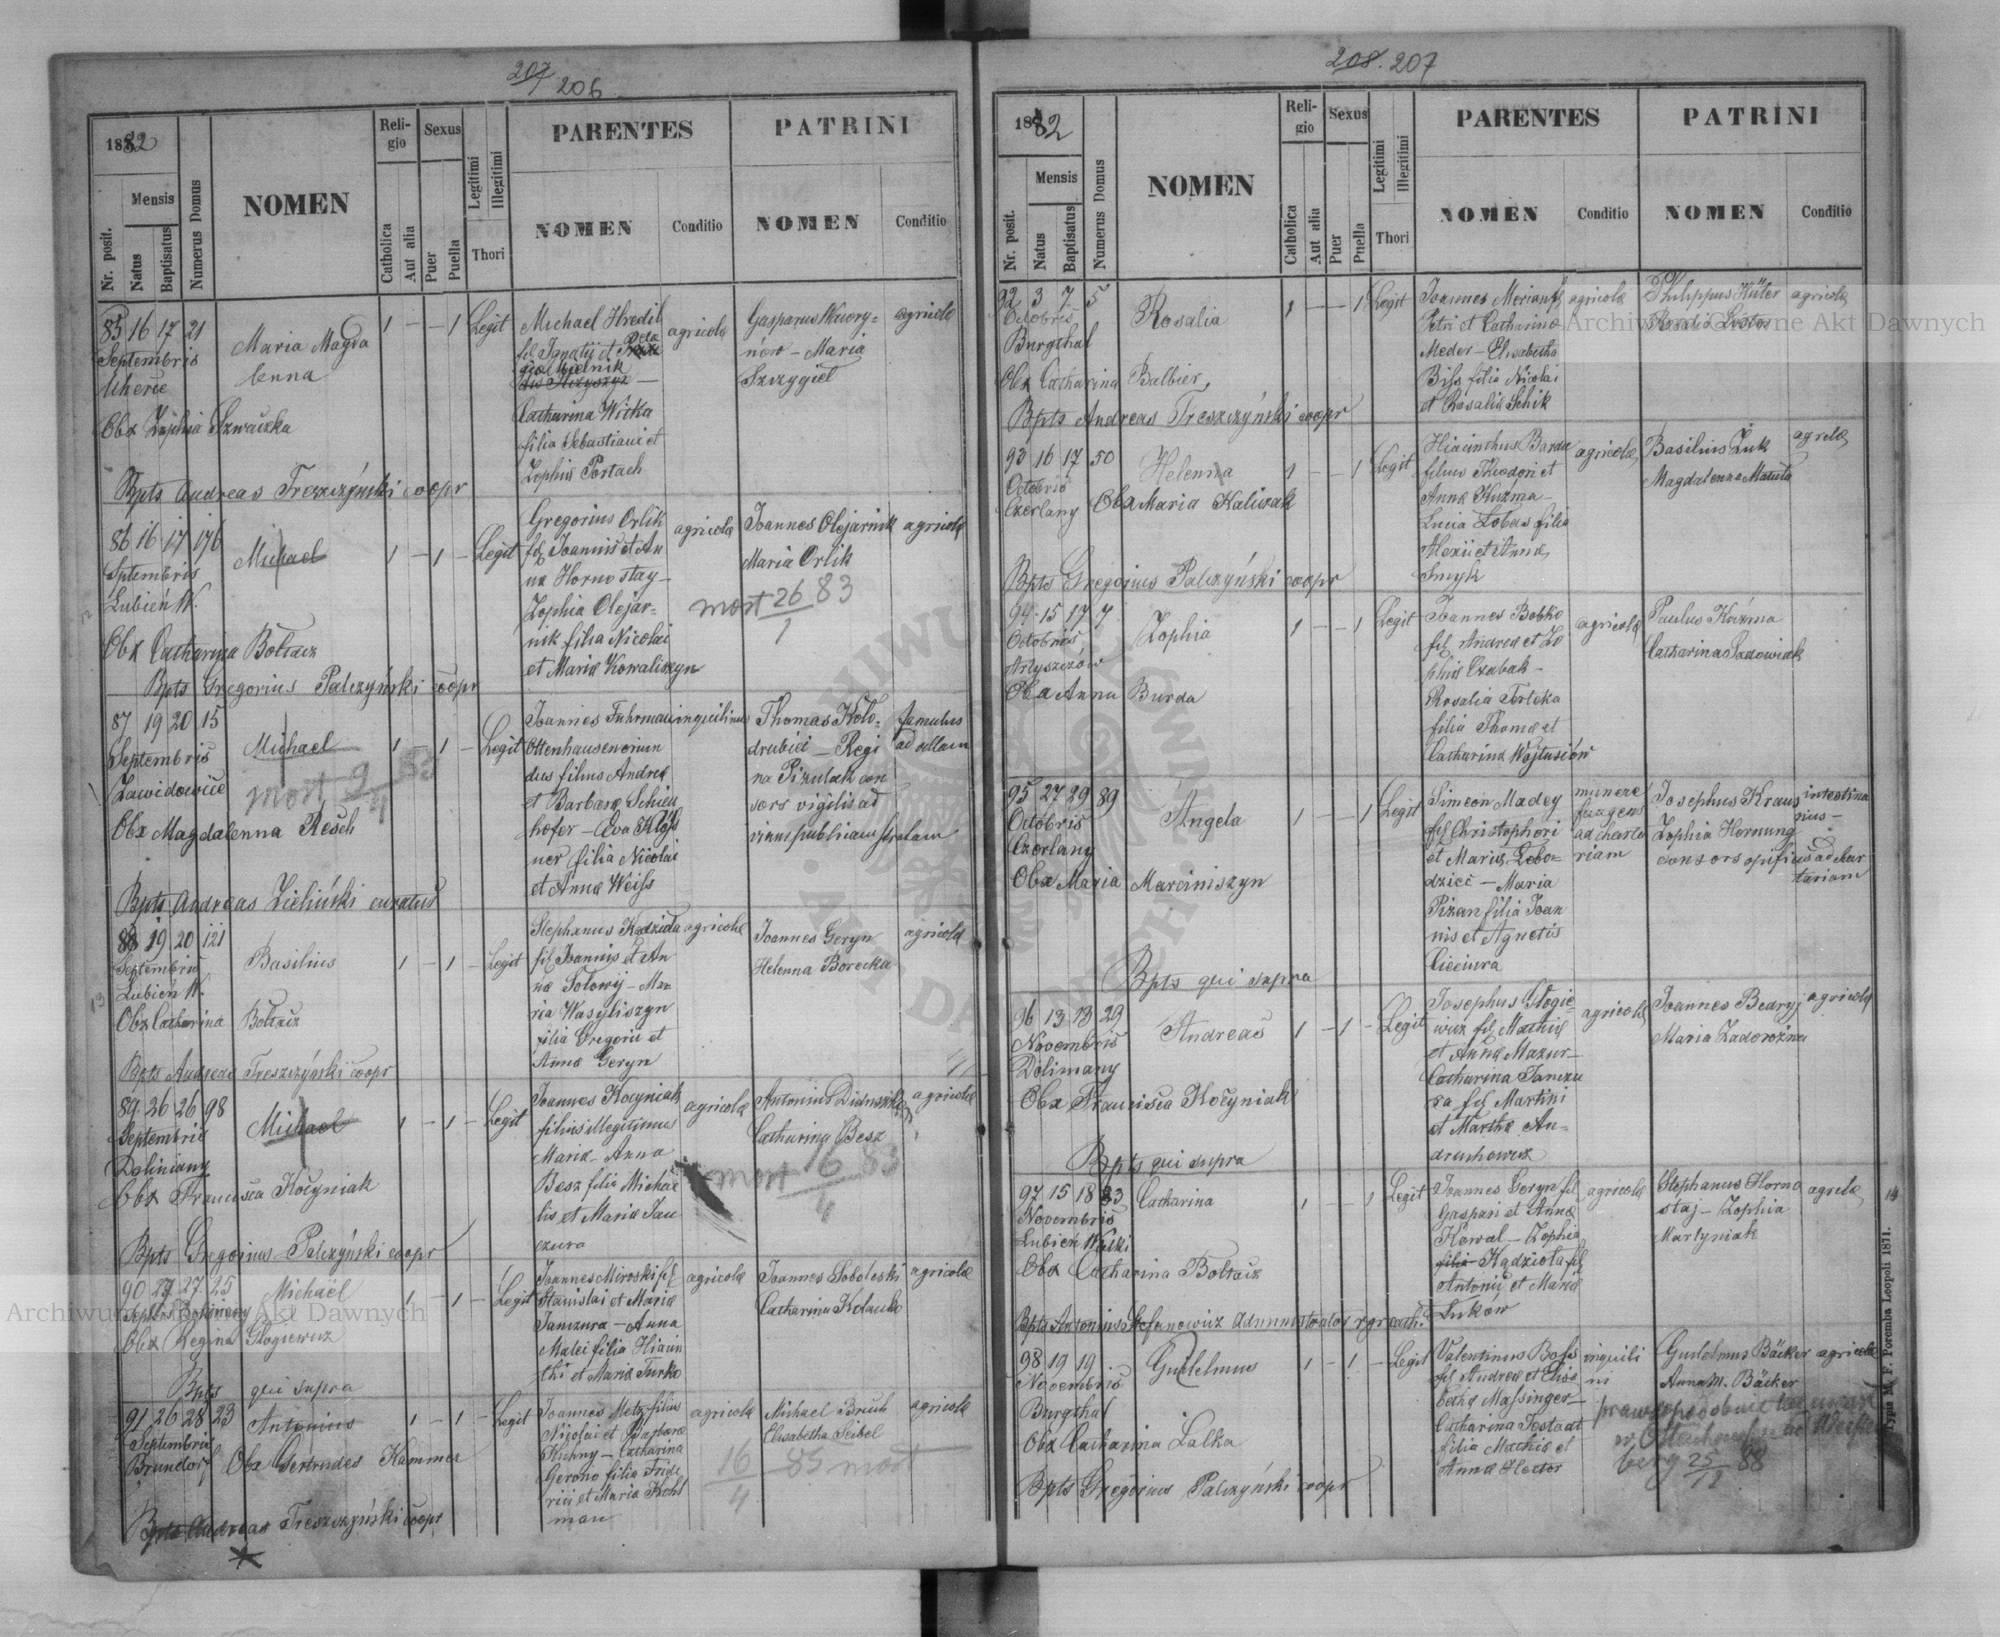 207 206
1882
Nr. posit.
Mensis
Natus
Baptisatus
Numerus Domus
NOMEN
Religio
Catholica
Aut alia
Sexus
Puer
Puella
Legitimi
Illegitimi
Thori
PARENTES
NOMEN
Conditio
PATRINI
NOMEN
Conditio
85 16 17 21
Septembris
Uherce
Maria Magda
lenna
1 - - 1 Legit
Michael Hredil
fil Ignatii et
Mielnik
Catharina Witka
filia Sebastiani et
Zophia Portach
agricola
Gasparus
nów - Maria
Szczygieł
agricola
Obx Zophia Szwaczka
Bpts Andreas Treszczyński coopr
86 16 17 176
Septembris
Lubień W.
Michael
1 - 1 - Legit
Gregorius Orlik
fil Joannis et An
na Hornostay -
Zophia Olejar=
nik filia Nicolai
et Maria Kowaliszyn
agricola
Joannes Olejarnik
Maria Orlik
agricola
mort 26/1 83
Obx Catharina Bołtacz
Bpts Gregorius Palczyński coopr
87 19 20 15
Septembris
Zawidowice
Michael
mort 9/4 83
1 - 1 - Legit
Joannes Fuhrmann
Ottenhausen oriun
dus filius Andrea
et Barbara Schien
hofer - Eva Kloss
ner filia Nicolai
et Anna Weiss
inquilinus
Thomas Koło=
drubiec - Regi
na Pizulak con
sors vigilis ad
viam publicam stratam
famulus
ad aulam
Obx Magdalenna Resch
Bpts Andreas Zieliński curatus
88 19 20 121
Septembris
Lubień W.
Basilius
1 - 1 - Legit
Stephanus Kędziola
fil Joannis et An
na Sołowij - Ma
ria Wasyliszyn
filia Gregorii et
Anna Geryn
agricola
Joannes Geryn
Helenna Borecka
agricola
Obx Catharina Bołtacz
Bpts Andreas Treszczyński coopr
89 26 26 98
Septembris
Doliniany
Michael
1 - 1 - Legit
Joannes Kocyniak
filius illegitimus
Maria - Anna
Besz filia Michae
lis et Maria Jan
czura
agricola
Catharina Besz
agricola
mort 16/4 83
Obx Francisca Kocyniak
Bpts Gregorius Palczyński coopr
90 27 27 25
Michaël
1 - 1 - Legit
Joannes Miroski fil
Stanislai et Maria
Janczura - Anna
Malei filia Hiacin
thi et Maria Turko
agricola
Joannes Soboleski
Catharina
agricola
Obx Regina Głogiewicz
Bpts qui supra
91 26 28 23
Septembris
Brundorf
Antonius
1 - 1 - Legit
Joannes Metz filius
Nicolai et Barbara
Kuhny - Catharina
Gerono filia Fride
rici et Maria Kohl
man
agricola
Michael Bruch
Elisabetha Seibel
agricola
16/4 85 mort
Obx Gertrudes Kammer
Bpts Andreas Treszczyński coopr
208. 207
1882
Nr. posit.
Mensis
Natus
Baptisatus
Numerus Domus
NOMEN
Religio
Catholica
Aut alia
Sexus
Puer
Puella
Legitimi
Illegitimi
Thori
PARENTES
NOMEN
Conditio
PATRINI
NOMEN
Conditio
92 3 7 5
Octobris
Burgthal
Rosalia
1 - - 1 Legit
Joannes Merian fil
Petri et Catharina
Meder - Elisabetha
Biss filia Nicolai
et Rosalia Schik
agricola
Philippus Hüter
agricola
Obx Catharina Balbier
Bpts Andreas Treszczyński coopr
93 16 17 50
Octobris
Czerlany
Helenna
1 - - 1 Legit
Hiacinthus Barda
filius Theodori et
Anna Kuźma -
Lucia Łobas filia
Alexii et Anna
Smyk
agricola
Basilius Żuk
Magdalenna
agrela
Obx Maria Kaliczak
Bpts Gregorius Palczyński coopr
94 15 17 7
Octobris
Artyszczów
Zophia
1 - - 1 Legit
Joannes Bobko
fil Andrea et Zo
phia Czabak -
Rosalia Terlecka
filia Thoma et
Catharina Wojtusiów
agricola
Paulus Kuźma
Catharina Sadowiak
Obx Anna Burda
95 27 29 89
Octobris
Czerlany
Angela
1 - - 1 Legit
Simeon Madey
fil Christophori
et Maria Lebo=
dzieć - Maria
Pizan filia Joan
nis et Agnetis
Cieciura
munere
fungens
ad charta
riam
Josephus Kraus
Zophia Hornung
consors opificis ad char
tariam
Obx Maria Marciniszyn
Bpts qui supra
96 13 18 29
Novembris
Dolimany
Andreas
1 - 1 - Legit
Josephus Głogie
wicz fil Mathia
et Anna Mazur -
Catharina Janczu
ra fil Martini
et Martha An=
druchowicz
agricola
Joannes Bedryj
Maria Zadorożna
agricola
Obx Francisca Kocyniak
Bpts qui supra
97 15 18 83
Novembris
Lubień Wielki
Catharina
1 - - 1 Legit
Joannes Geryn fil
Gaspari et Anna
Kowal - Zophia
filia Kędziola fil
Antonii et Maria
Łuków
agricola
Stephanus Horno
staj - Zophia
Martyniak
agrela
Obx Catharina Bołtacz
Bpts Antonius Stefanowicz Administrator gr. cath.
98 19 19
Novembris
Burgthal
Guilelmus
1 - 1 - Legit
Valentinus Boss
fil Andrea et Elisa
betha Massinger -
Catharina Jestadt
filia Mathia et
Anna Hector
inquili
ni
Guilelmus Bäcker
Anna M. Bäcker
agricola
berg 25/12 88
Obx Catharina Lalka
Bpts Gregorius Palczyński coopr
Typis M. F. Poremba Leopoli 1871.
Archiwum Główne Akt Dawnych
Archiwum Główne Akt Dawnych